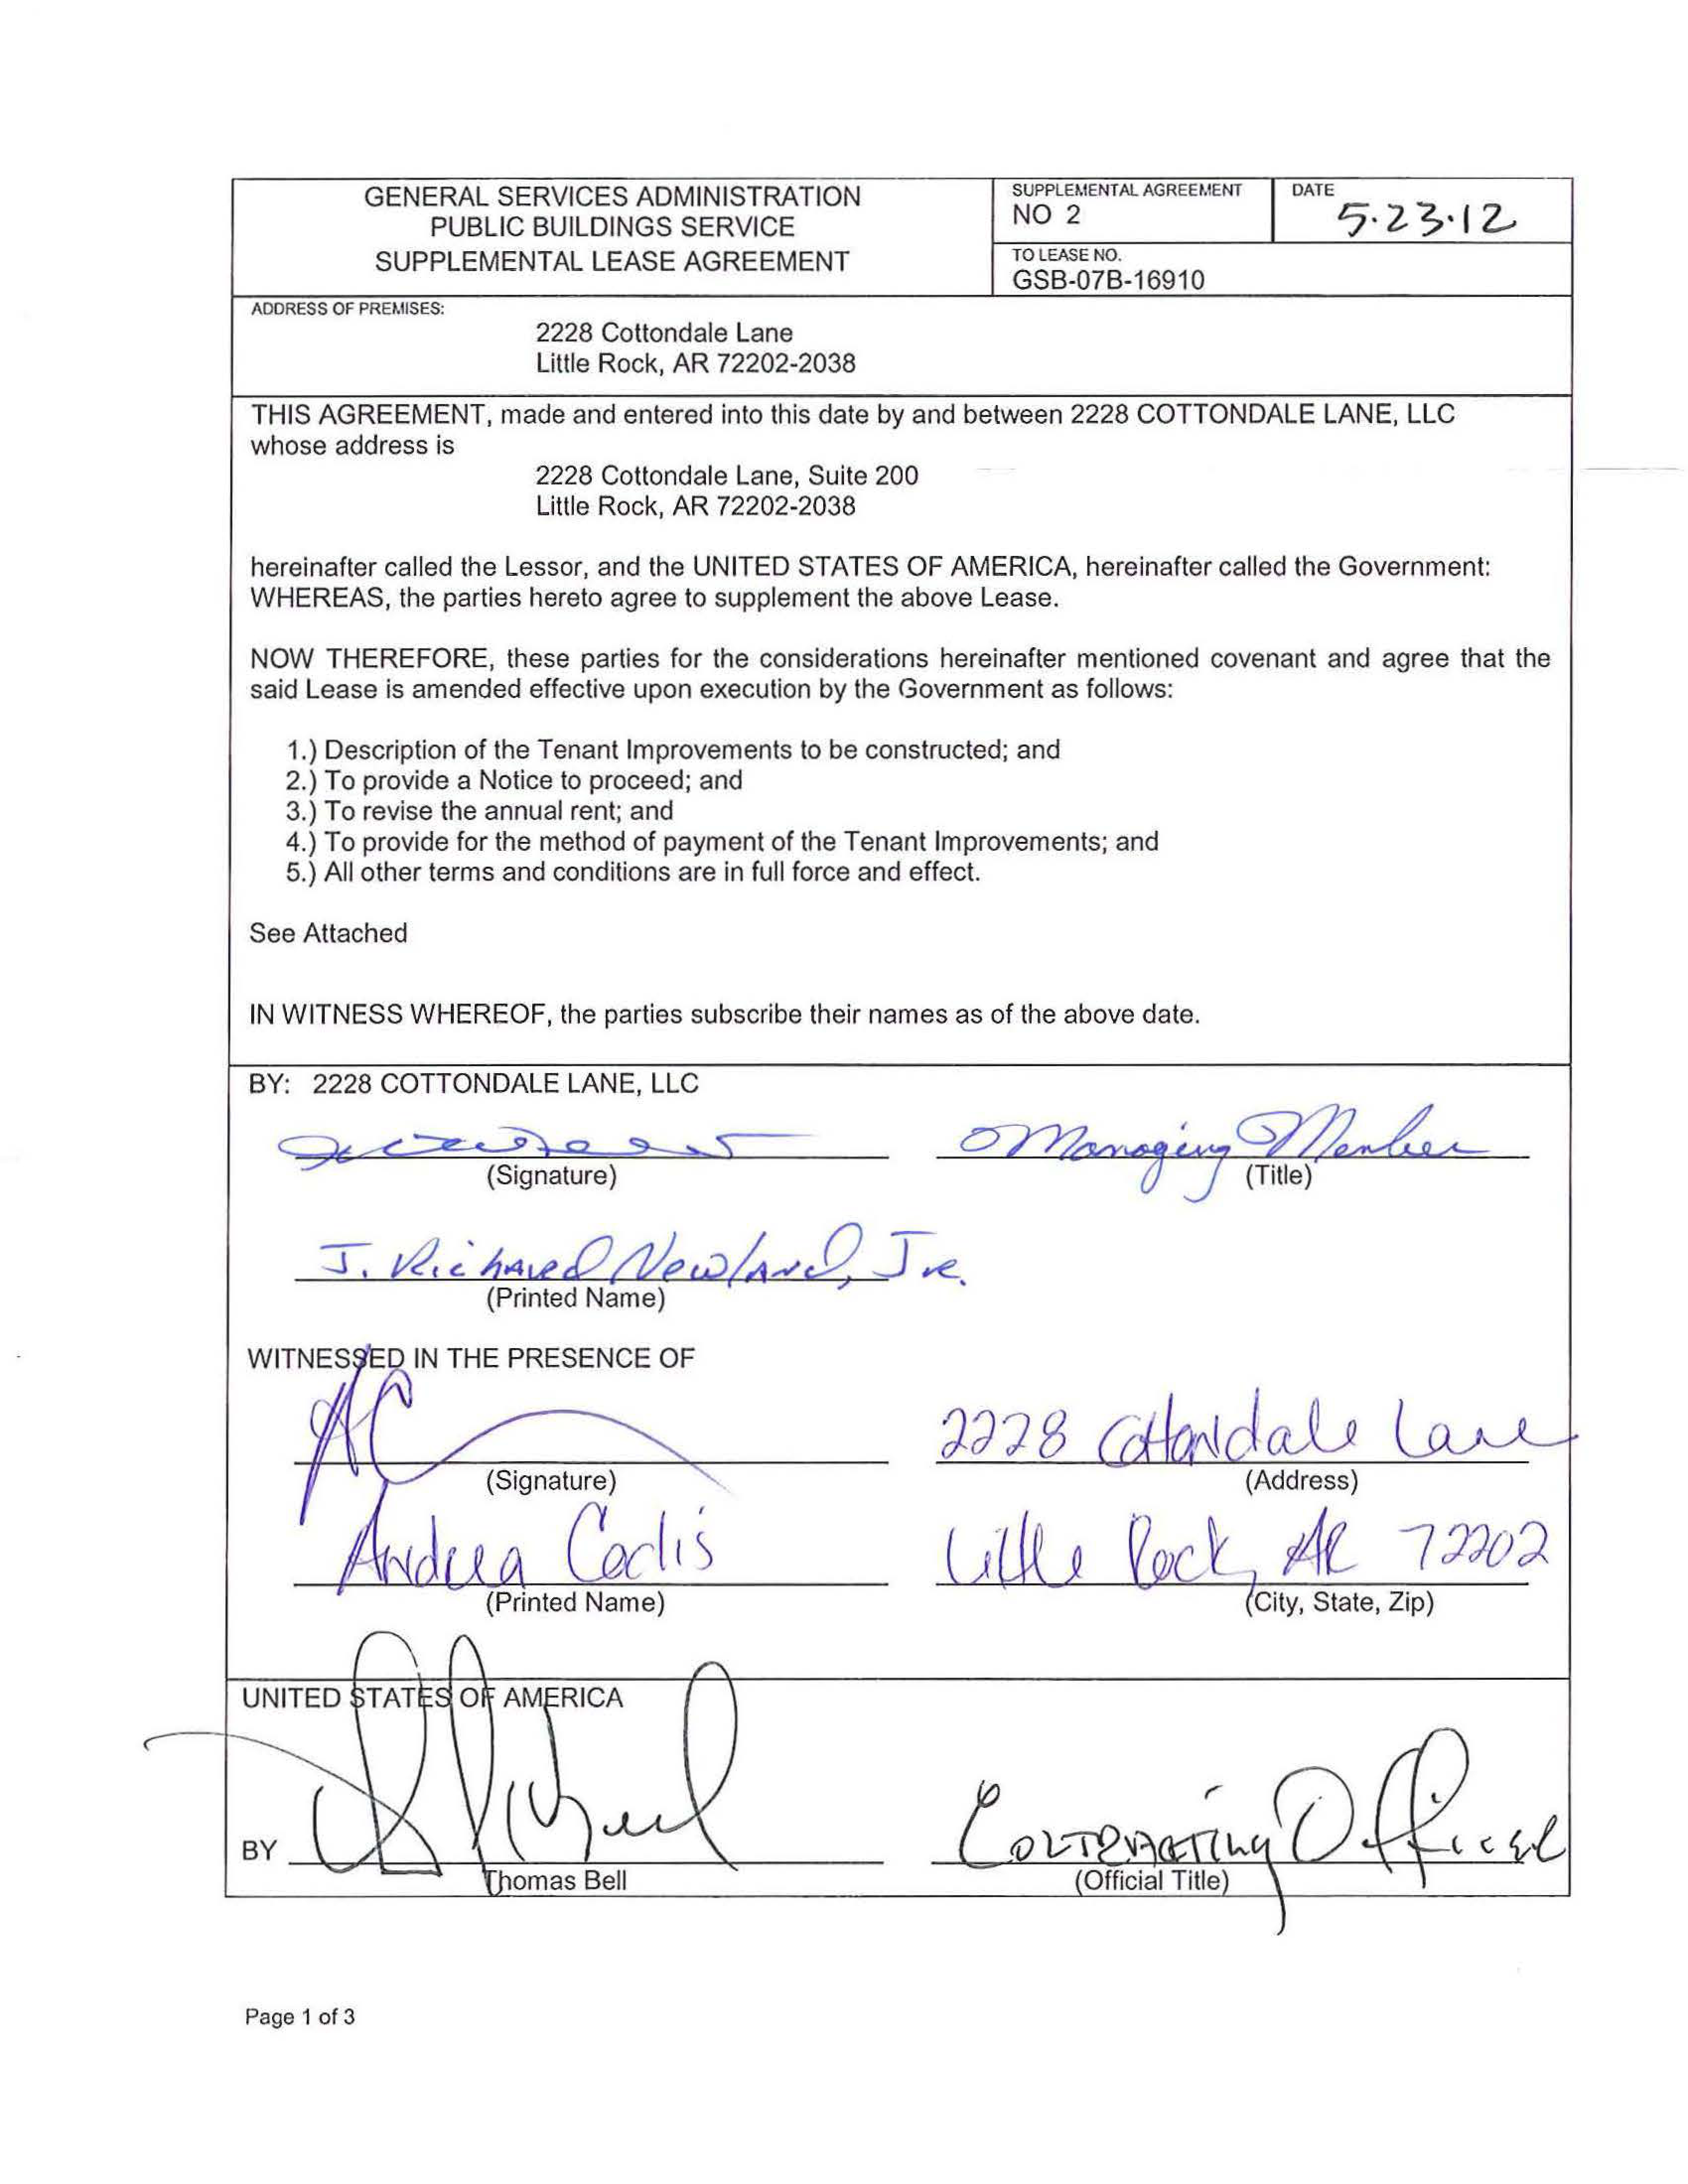 GENERAL SERVICES ADMINISTRATION
PUBLIC BUILDINGS SERVICE
SUPPLEMENTAL LEASE AGREEMENT
SUPPLEMENTAL AGREEMENT
NO 2
DATE
5.23.12
TO LEASE NO.
GSB-07B-16910
ADDRESS OF PREMISES:
2228 Cottondale Lane
Little Rock, AR 72202-2038
THIS AGREEMENT, made and entered into this date by and between 2228 COTTONDALE LANE, LLC
whose address is
2228 Cottondale Lane, Suite 200
Little Rock, AR 72202-2038
hereinafter called the Lessor, and the UNITED STATES OF AMERICA, hereinafter called the Government:
WHEREAS, the parties hereto agree to supplement the above Lease.
NOW THEREFORE, these parties for the considerations hereinafter mentioned covenant and agree that the
said Lease is amended effective upon execution by the Government as follows:
1.) Description of the Tenant Improvements to be constructed; and
2.) To provide a Notice to proceed; and
3.) To revise the annual rent; and
4.) To provide for the method of payment of the Tenant Improvements; and
5.) All other terms and conditions are in full force and effect.
See Attached
IN WITNESS WHEREOF, the parties subscribe their names as of the above date.
BY: 2228 COTTONDALE LANE, LLC
Managing Member
(Signature)
(Title)
J. Richard Newland, Jr.
(Printed Name)
WITNESSED IN THE PRESENCE OF
2228 Cottondale Lane
(Signature)
(Address)
Andrea
Little Rock, AR 72202
(Printed Name)
(City, State, Zip)
UNITED STATES OF AMERICA
BY
Contracting Officer
Thomas Bell
(Official Title)
Page 1 of 3